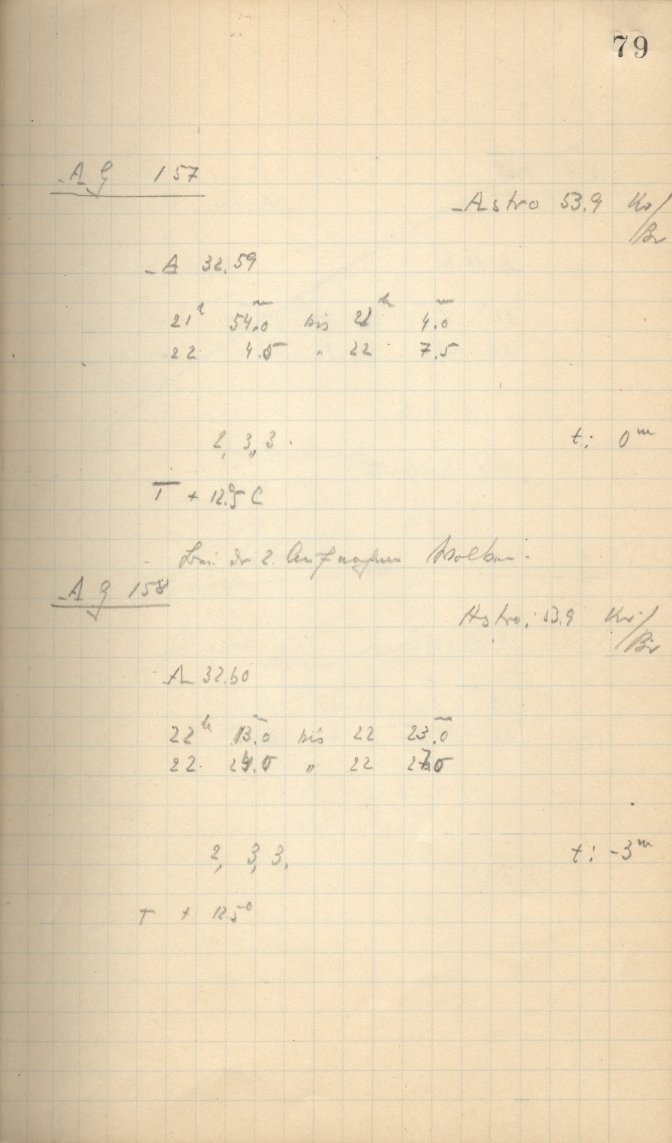 79
A G 157
Astro 53.9 Kö/
Br
A 32.59
21ʰ 54ᵐ.0 bis 22ʰ 4ᵐ.0
22 4.5 " 22 7.5
2, 3, 3.
t: 0ᵐ
T + 12°.5 C
Bei der 2. Aufnahme Wolken.
A G 158
Astro. 53.9 Kö/
Br
A 32.60
22ʰ 13ᵐ.0 bis 22 23ᵐ.0
22. 24.0 " 22 27.0
2, 3, 3.
t: -3ᵐ
T + 12.5°